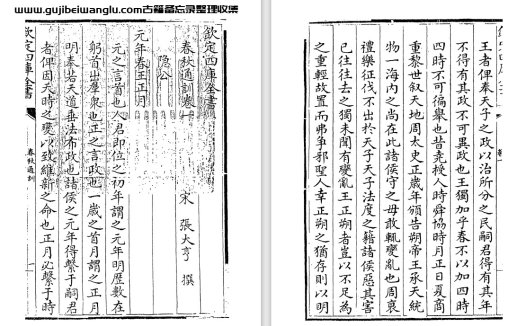 www.gujibeiwanglu.com古籍备忘录整理收集
欽定四庫全書
春秋通訓卷一
宋 張大亨 撰
隱公
元年春王正月
元之言首也人君即位之初年謂之元年明歷數在
躬首出羣衆也正之言政也一歲之首月謂之正月
明奉若天道垂法布政也諸侯之元年得繫于嗣君
者俾因天時之變以致維新之命也正月必繫于時
欽定四庫全書
春秋通訓
王者俾奉天子之政以治所分之民嗣君得有其年
不得有其政不可異政也王獨加乎春不以加四時
四時不可徧舉也昔堯授人時舜協時月正日夏商
重黎世叙天地周太史正歲年頒告朔帝王承天統
物一海内之尚在此諸侯守之毋敢輒變亂也周衰
禮樂征伐不出於天子天子法度之籍諸侯惡其害
已往往去之獨未聞有變亂王正朔者豈以不足為
之重輕故置而弗爭邪聖人幸正朔之猶存則以明